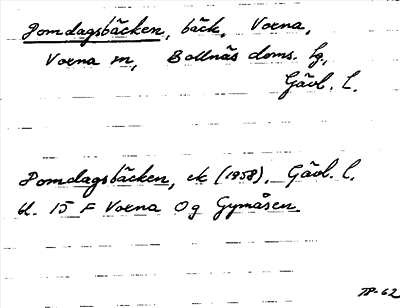 Domdagsbäcken, bäck, Vorna,
Vorna m, Bollnäs doms. lg,
Gävl. l.
Domdagsbäcken, ek (1958). Gävl. l.
bl. 15 F Vorna Og Gymåsen
TP-62